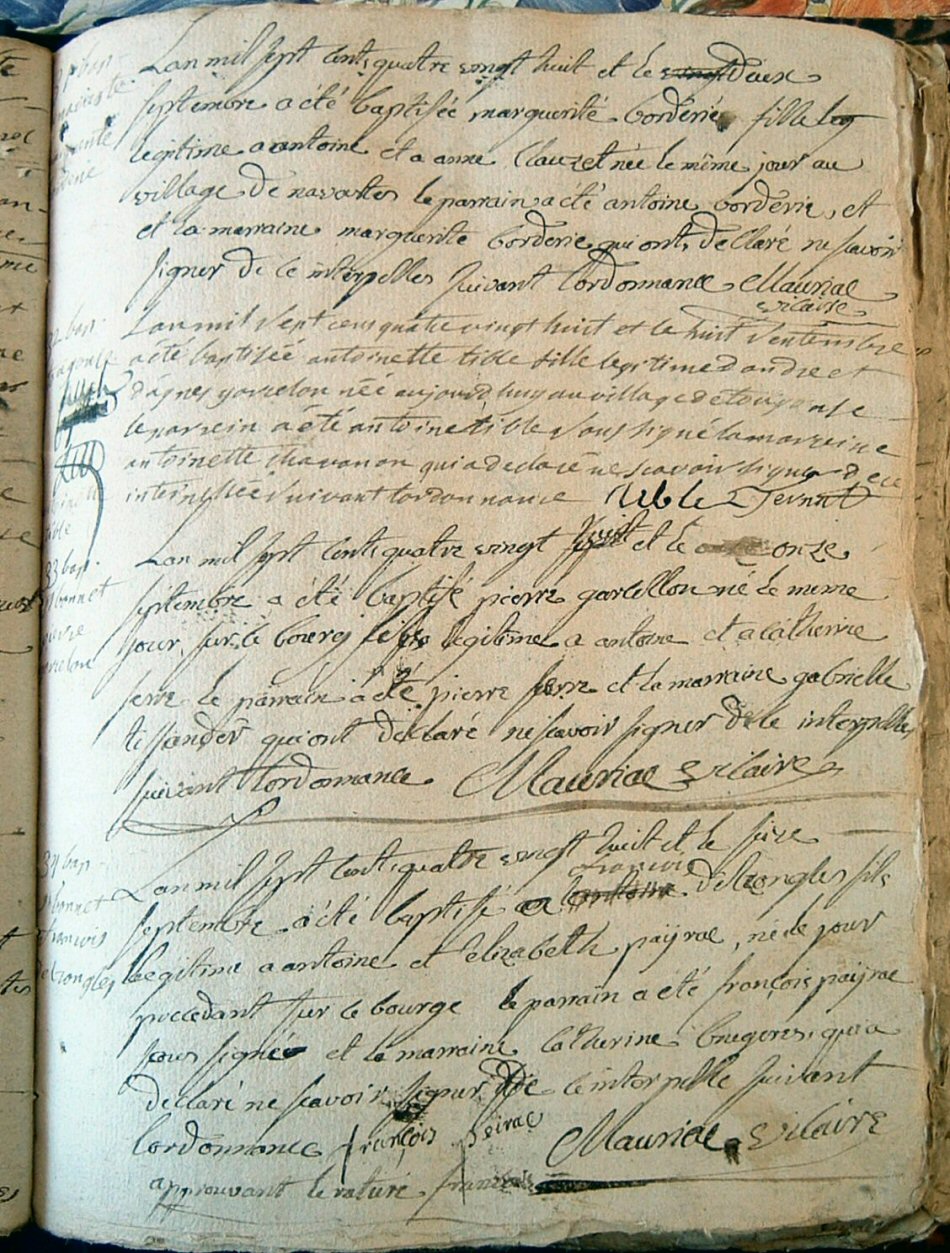 Lan mil sept cents quatre vingt huit et le vingt Deux
septembre a été baptisée marguerite borderie fille leg
legitime a antoine et a anne Clauzet née le même jour au
village De navastes le parrain a été antoine borderie, et
et la marraine marguerite borderie qui ont, declaré ne scavoir
signer de ce interpelles suivant lordonnance Mauriac
vicaire
Lan mil sept cens quatre vingt huit et le huit septembre
a été baptisée antoinette tible fille legitime d andre et
d agnes née aujourd huy au village de
le parrein a été antoine tible soussigné la marreine
antoinette chavanon qui a declaré ne scavoir signer de ce
interpellée suivant lordonnance tible Ternat
Lan mil sept cents quatre vingt huit et le onze
33 bap.
bonnet
septembre a été baptisé pierre garcellon né le meme
jour sur le bourg fils legitime a antoine et a Catherine
serre le parrain a été pierre serre et la marraine gabrielle
tissandier qui ont declaré ne scavoir signer de ce interpellés
suivant lordonnance Mauriac vicaire
34 bap
bonnet
francois
delzongles
Lan mil sept cents quatre vingt huit et le seize
francois
septembre a été baptisé antoine delzongles fils
legitime a antoine et elizabeth payrac, né le jour
precedant sur le bourg le parrain a été françois payrac
sous signé et la marraine Catherine brugeres, qui a
declaré ne scavoir signer De ce interpelle suivant
lordonnance françois peirac Mauriac vicaire
approuvant le raturé